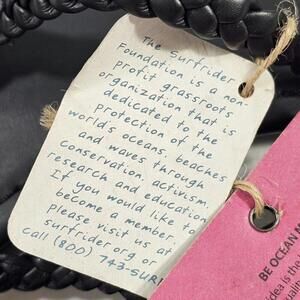 The Surfrider
Foundation is a non-
profit grassroots
organization that is
dedicated to the
protection of the
world's oceans, beaches
and waves through
conservation, activism,
research and education.
If you would like to
become a member,
please visit us at
surfrider.org or
call (800) 743-SURF
BE OCEAN